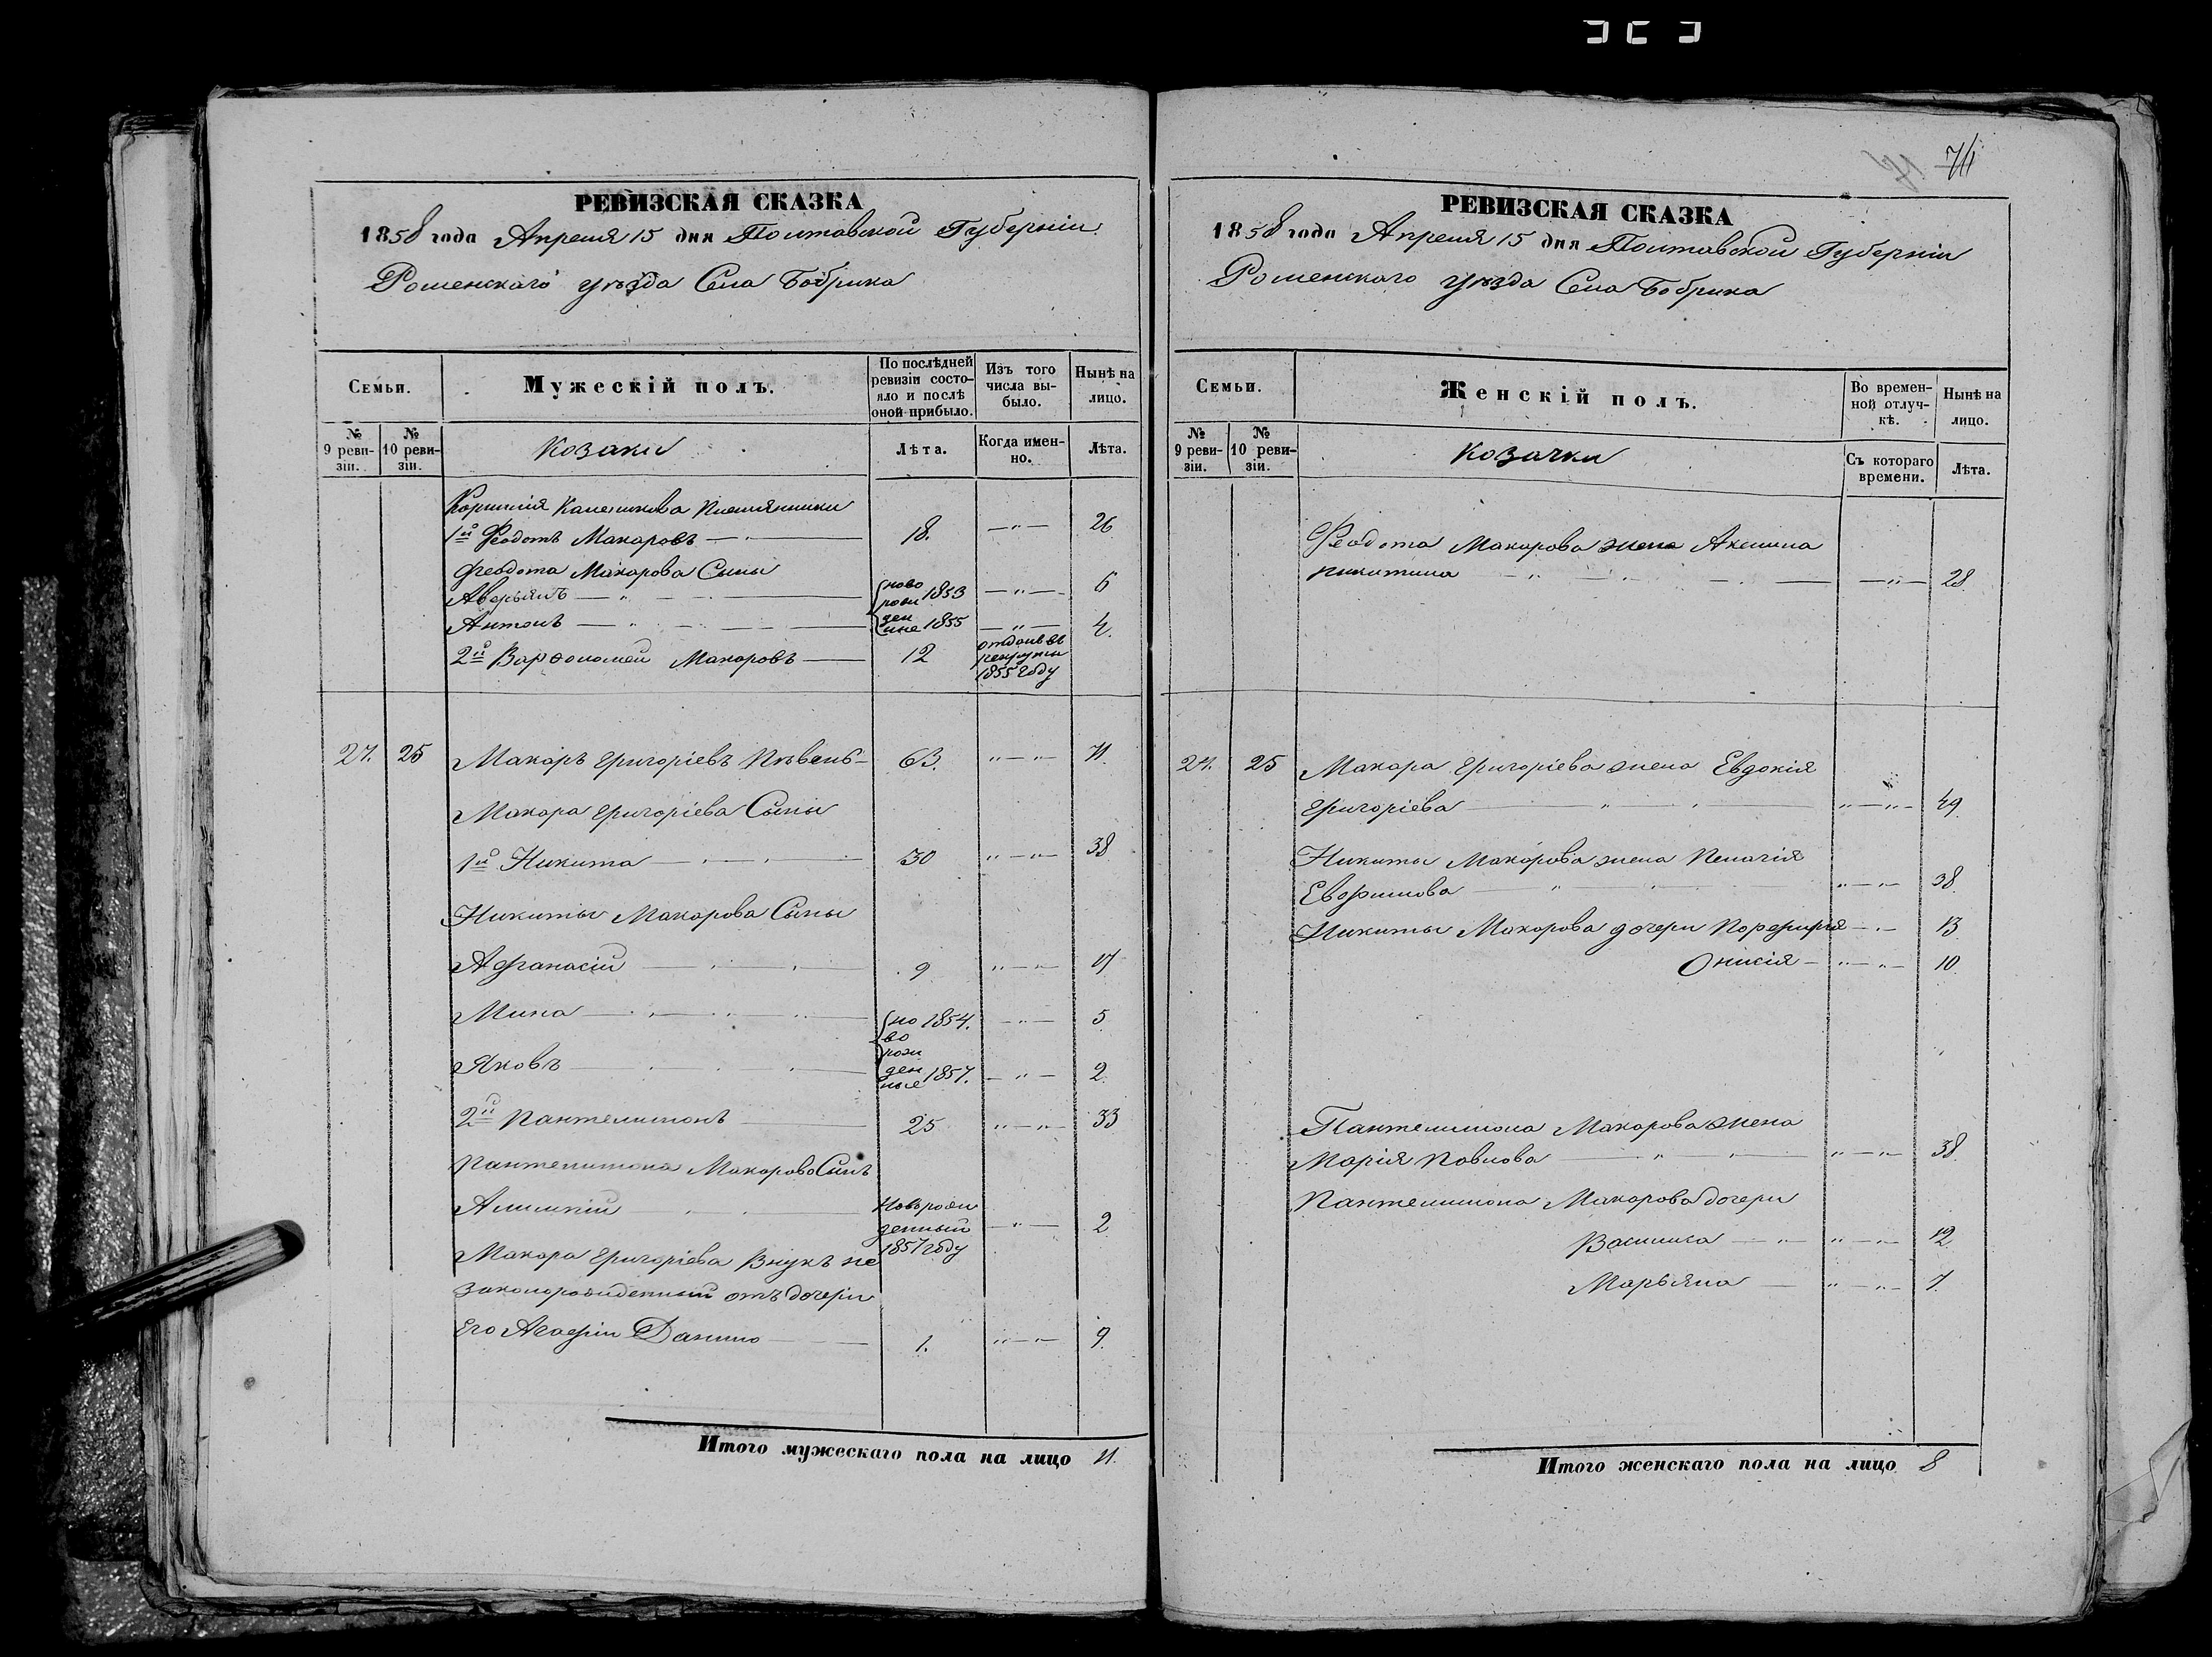 74
РЕВИЗСКАЯ СКАЗКА
1858 года Апреля 15 дня Полтавской Губерніи
Роменскаго уѣзда Села Бобрика
Семьи.
Мужескій полъ.
По послѣдней ревизіи состояло и послѣ оной прибыло.
Изъ того числа выбыло.
Нынѣ на лицо.
№ 9 ревизіи.
№ 10 ревизіи.
Козаки
Лѣта.
Когда именно.
Лѣта.
Племянники
1й Феодотъ Макаровъ 18. 26
Феодота Макарова Сыны
Аверьянъ новорожденные 1853 6
Антонъ 1855 4.
2й Варфоломей Макаровъ 12 отданъ въ рекруты 1855 году
27. 25 Макаръ Григоріевъ Пѣвень 63. 71
Макара Григоріева Сыны
1й Никита 30 38
Никиты Макарова Сыны
Афанасій 9 17
Мина новорожденные 1854. 5
Яковъ 1857. 2
2й Пантелимонъ 25 33
Пантелимона Макарова Сынъ
Алимпій Новорожденный 1857 году 2
Макара Григоріева Внукъ не
законорожденный отъ дочери
Его Агафіи Данило 1. 9
Итого мужескаго пола на лицо 11.
РЕВИЗСКАЯ СКАЗКА
1858 года Апреля 15 дня Полтавской Губерніи
Роменскаго уѣзда Села Бобрика
Семьи.
Женскій полъ.
Во временной отлучкѣ.
Нынѣ на лицо.
№ 9 ревизіи.
№ 10 ревизіи.
Козачки
Съ котораго времени.
Лѣта.
Феодота Макарова жена Аксинія
Никитина 28
27. 25 Макара Григоріева жена Евдокія
Григоріева 49
Никиты Макарова жена Пелагія
Евфимова 38
Никиты Макарова дочери Порфирія 13
Онисія 10
Пантелимона Макарова жена
Марія Павлова 38
Пантелимона Макарова дочери
Василиса 12
Марьяна 7
Итого женскаго пола на лицо 8